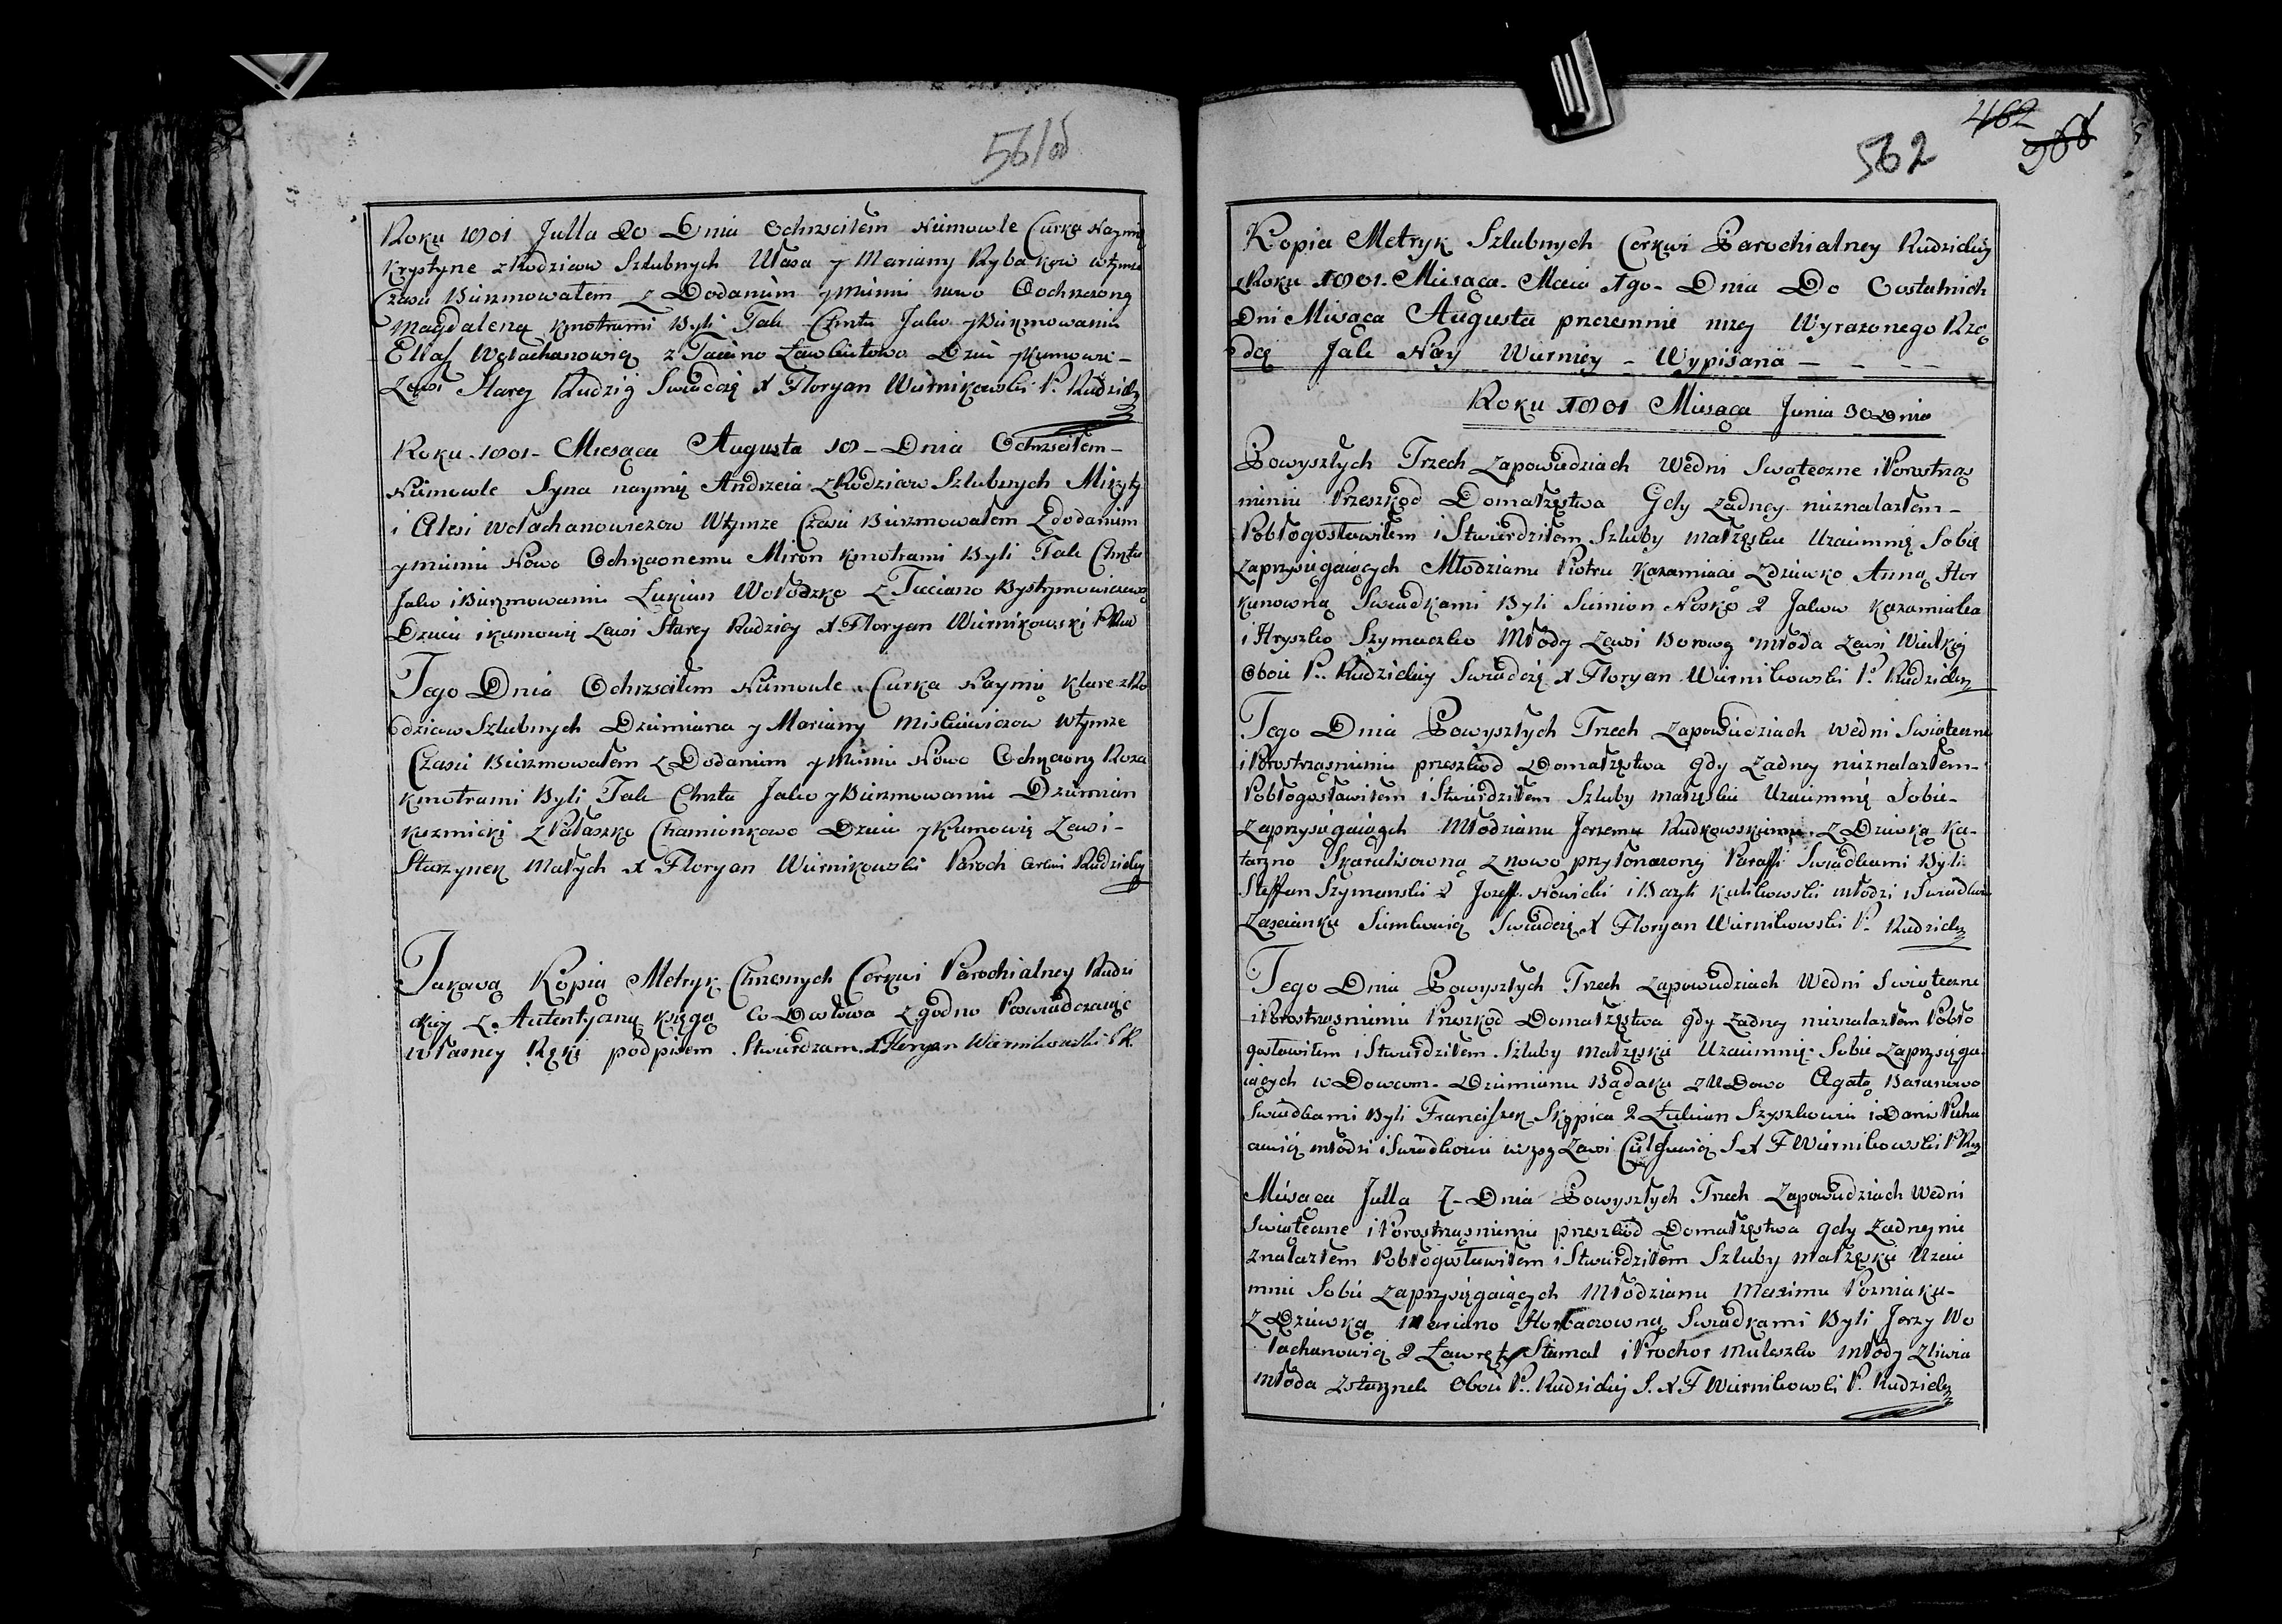 561 od
Roku 1801 Julla 20 Dnia Ochrzciłem Niemowle Curka Naymię
Krystyne z Rodziców Szlubnych Ułasa y Mariany Rybakow wtymże
Czasie Bierzmowałem z Dodaniem ymieni nowo Oochrzconą
Magdaleną kmotrami Byli Tak Chrztu Jako y Bierzmowaniu
Eliasz Wołachanowicz z Dzieci y kumowie
Zewsi Starey Rudzicy Swiadczę X Floryan Wiernikowski P. Rudzicky
Roku 1801 Miesąca Augusta 18 Dnia Ochrzciłem
Niemowle Syna naymię Andrzeia z Rodziców Szlubnych Mikity
i Alesi Wołachanowiczow Wtymże Czasie Bierzmowałem z dodaniem
ymienia Nowo Ochrzconemu Miron kmotrami Byli Tak Chrztu
Jako i Bierzmowaniu Łukian Wołodzko z Bystrymowiczewo
Dzieci i kumowie zewsi Starey Rudzicy X. Floryan Wiernikowski PRud
Tego Dnia Ochrzciłem Niemowle Curka Naymię Klare z Ro
dziców Szlubnych Dziemiana y Mariany Miskiewiczow Wtymże
Czasie Bierzmowałem z Dodaniem ymienia Nowo Ochrzconą Roza
kmotrami Byli Tak Chrztu Jako y Bierzmowaniu Dziemian
Kuzmicki z Pałaszko Chamionkowo Dzieci y Kumowie zewsi
Starzynek Małych X Floryan Wiernikowski Paroch Cerkwi Rudzicky
Takową Kopią Metryk Chrzesnych Cerkwi Parochialney Rudzi
ckiey z Autentyczną księgą Co Dosłowa zgodno Poswiadczaiąc
własney Ręki podpisem Stwierdzam X Floryan Wiernikowski P.R.
462
562
Kopia Metryk Szlubnych Cerkwi Parochialney Rudzickiey
z Roku 1801 Miesąca Maia 1go Dnia Do Oostatnich
Dni Miesąca Augusta przezemnie niżey Wyrażonego Rzą
dcę Jak Nay Wierniey Wypisana
Roku 1801 Miesąca Junia 30 Dnia
Powyszłych Trzech Zapowiedziach Wedni Swąteczne i Porostrząs
nieniu Przeszkod Domałżęstwa Gdy Żadney nieznalazłem
Pobłogosławiłem i Stwierdziłem Szluby małżęskie Uzaiemnię Sobię
Zaprzysięgaiących Młodzianu Piotru Karamiaie zdziewko Anną Hor
kunowną Swiadkami Byli Siemion Nosko 2 Jakow Karamialia
i Hryszko Szymaczko Młody Zewsi Borową młoda Zewsi Wielkiey
Oboie P. Rudzickiey Swiadczę X Floryan Wiernikowski P. Rudzicky
Tego Dnia Powyszłych Trzech Zapowiedziach Wedni Swiąteczne
i Porostrząsnieniu przeszkod Domałżęstwa gdy Żadney nieznalazłem
Pobłogosławiłem i Stwierdziłem Szluby małżęskie Uzaiemnię Sobie
Zaprzysięgaiących Młodzianu Jerzemu Rudkowskiemu z Dziwką Ka
tarzno Skarulisowną znowo przyłonczoney Paraffi Swiadkami Byli
Steffan Szymanski 2 Jozeff Nowicki i Bazyli Kulikowski młodzi i Swiadkowie
Zascianku Siemkowicz Swiadczę X Floryan Wiernikowski P. Rudzicky
Tego Dnia Powyszłych Trzech Zapowiedziach Wedni Swiąteczne
i Porostrząsnieniu Przeszkod Domałżęstwa gdy Żadney nieznalazłem Pobło
gosławiłem i Stwierdziłem Szluby Małżęskie Uzaiemnię Sobie Zaprzysięga
iących wDowcem Dziemianu Bądaku zUDowo Agatę Baranowo
Swiadkami Byli Franciszek Skępica 2 Łukian Szyszkowie i Danił Piecha
młodzi i Swiadkowie Zewsi S X F Wiernikowski P Ru
Miesąca Julla 7 Dnia Powyszłych Trzech Zapowiedziach Wedni
Swiąteczne i Porostrząsnieniu przeszkod Domałżęstwa gdy Żadney nie
znalazłem Pobłogosławiłem i Stwierdziłem Szluby małżęskie Uzaie
mnie Sobie Zaprzysięgaiących Młodzianu Maximu Pozniaku
z Dziewką Mariano Horbaczowną Swiadkami Byli Jerzy Wo
łachanowicz 2 Ławręty Stamal i Prochor Muleszko młody
młoda Oboie P. Rudzickiey S. X F Wiernikowski P. Rudzicky